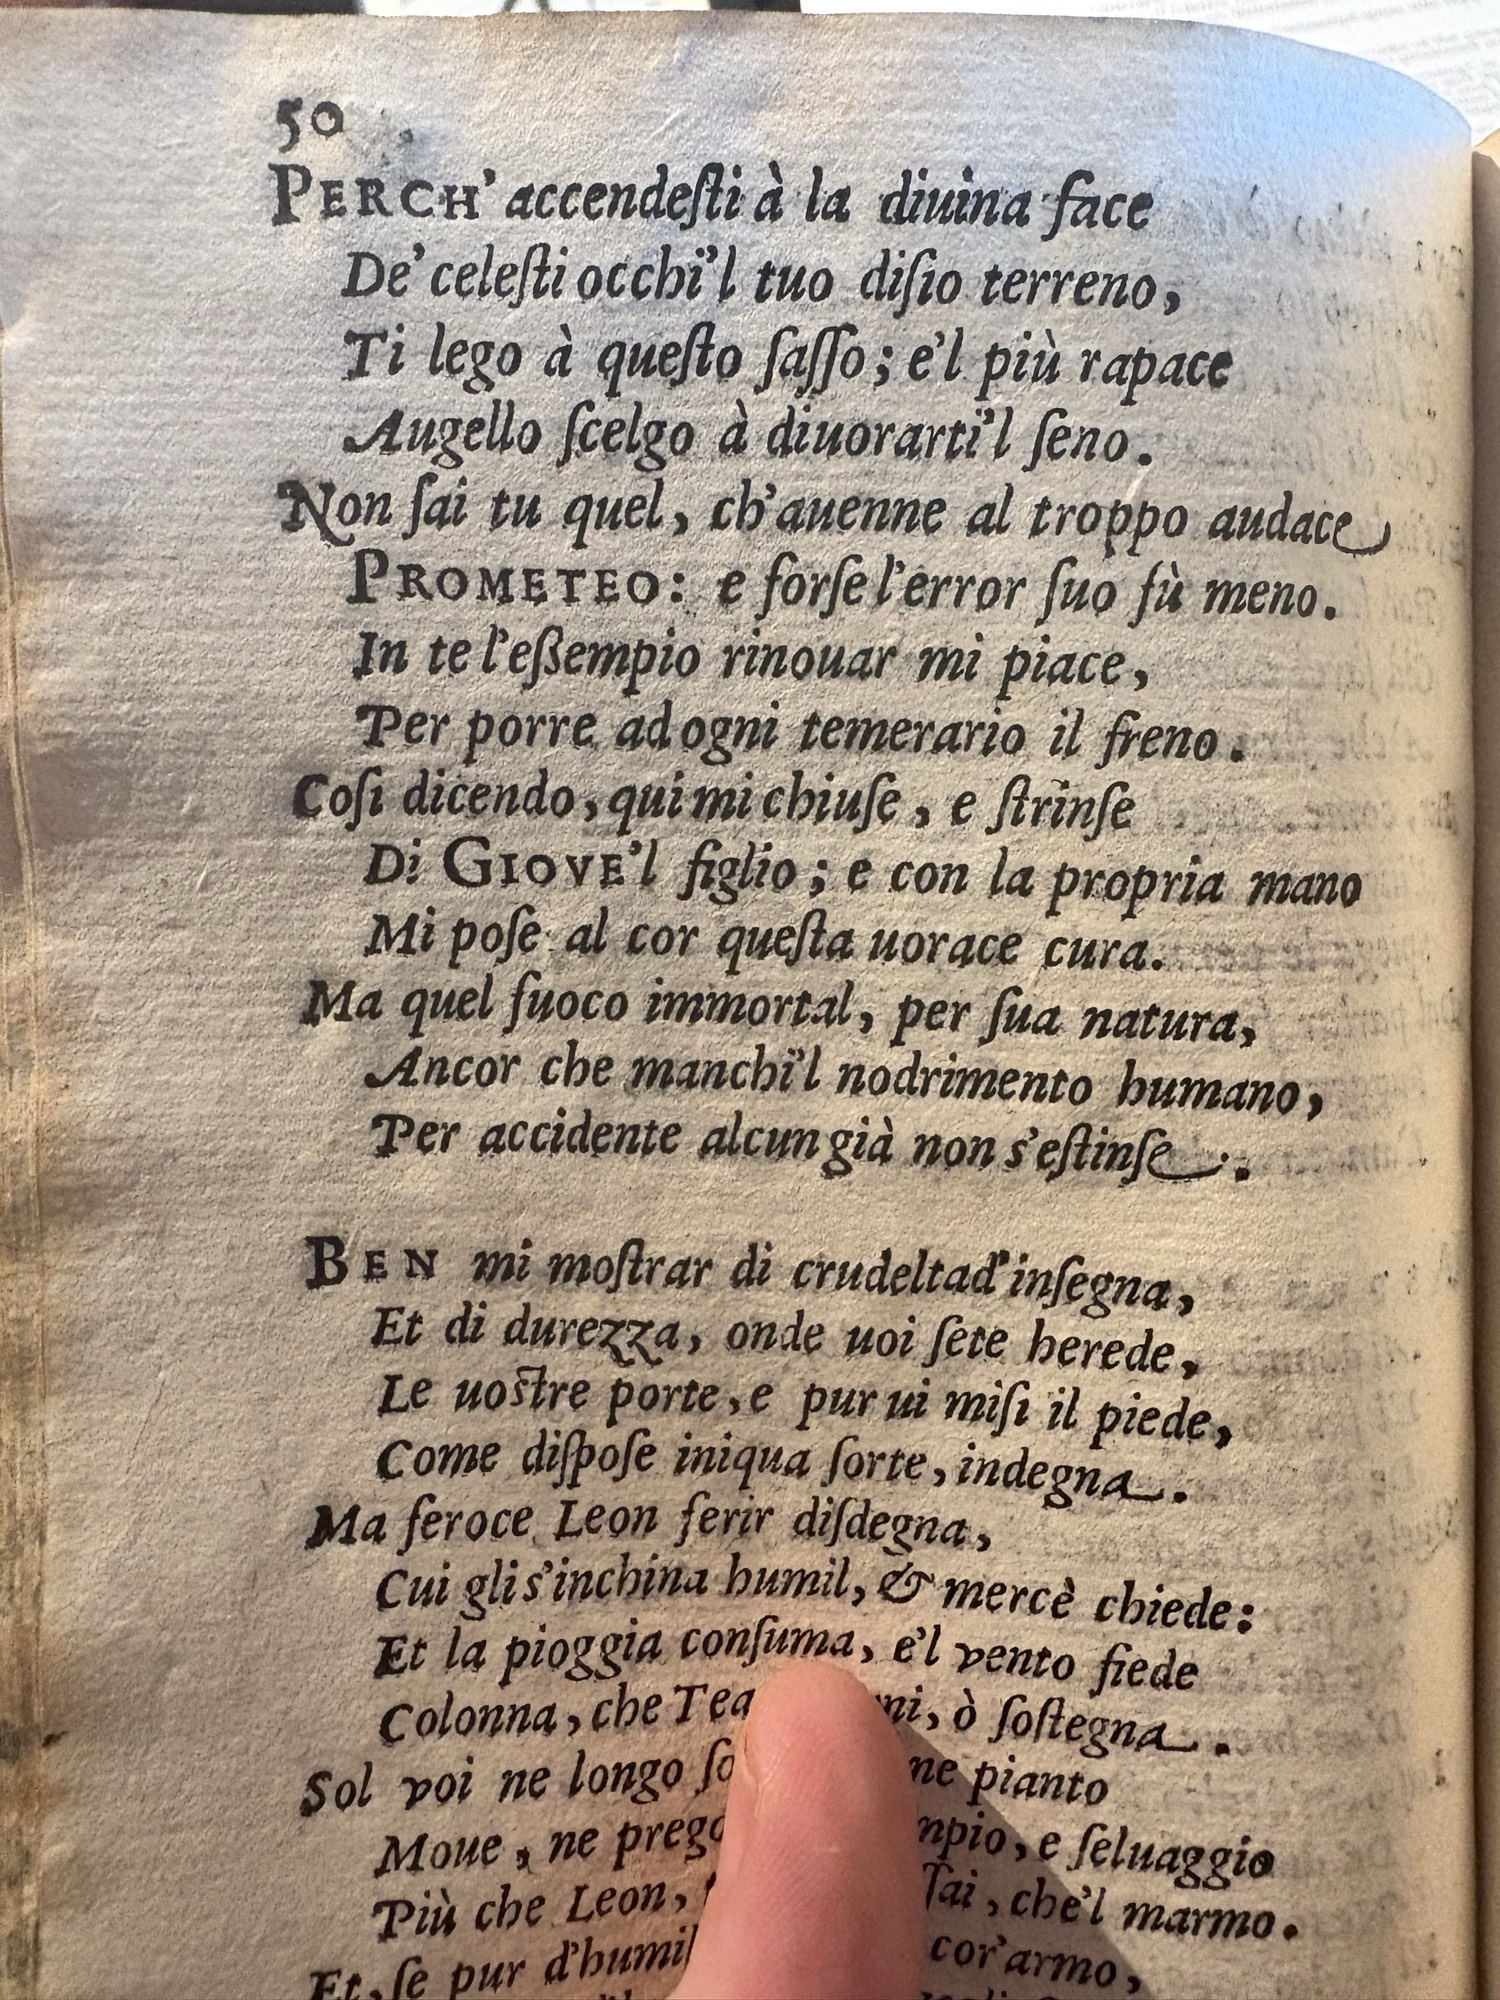 50
PERCH' accendeſti à la diuina face
De' celeſti occhi'l tuo diſio terreno,
Ti lego à queſto ſaſſo; e'l più rapace
Augello ſcelgo à diuorarti'l ſeno.
Non ſai tu quel, ch'auenne al troppo audace
PROMETEO: e forſe l'error ſuo fù meno.
In te l'eßempio rinouar mi piace,
Per porre ad ogni temerario il freno.
Coſi dicendo, qui mi chiuſe, e ſtrinſe
Di GIOVE'l figlio; e con la propria mano
Mi poſe al cor queſta uorace cura.
Ma quel fuoco immortal, per ſua natura,
Ancor che manchi'l nodrimento humano,
Per accidente alcun già non s'eſtinſe.
BEN mi moſtrar di crudeltad' inſegna,
Et di durezza, onde uoi ſete herede,
Le uoſtre porte, e pur ui miſi il piede,
Come diſpoſe iniqua ſorte, indegna.
Ma feroce Leon ferir diſdegna,
Cui gli s'inchina humil, & mercè chiede:
Et la pioggia conſuma, e'l vento fiede
Colonna, che ò ſoſtegna.
Sol voi ne longo pianto
Moue, ne e ſeluaggio
Più che Leon, che'l marmo.
Et, ſe pur cor'armo,